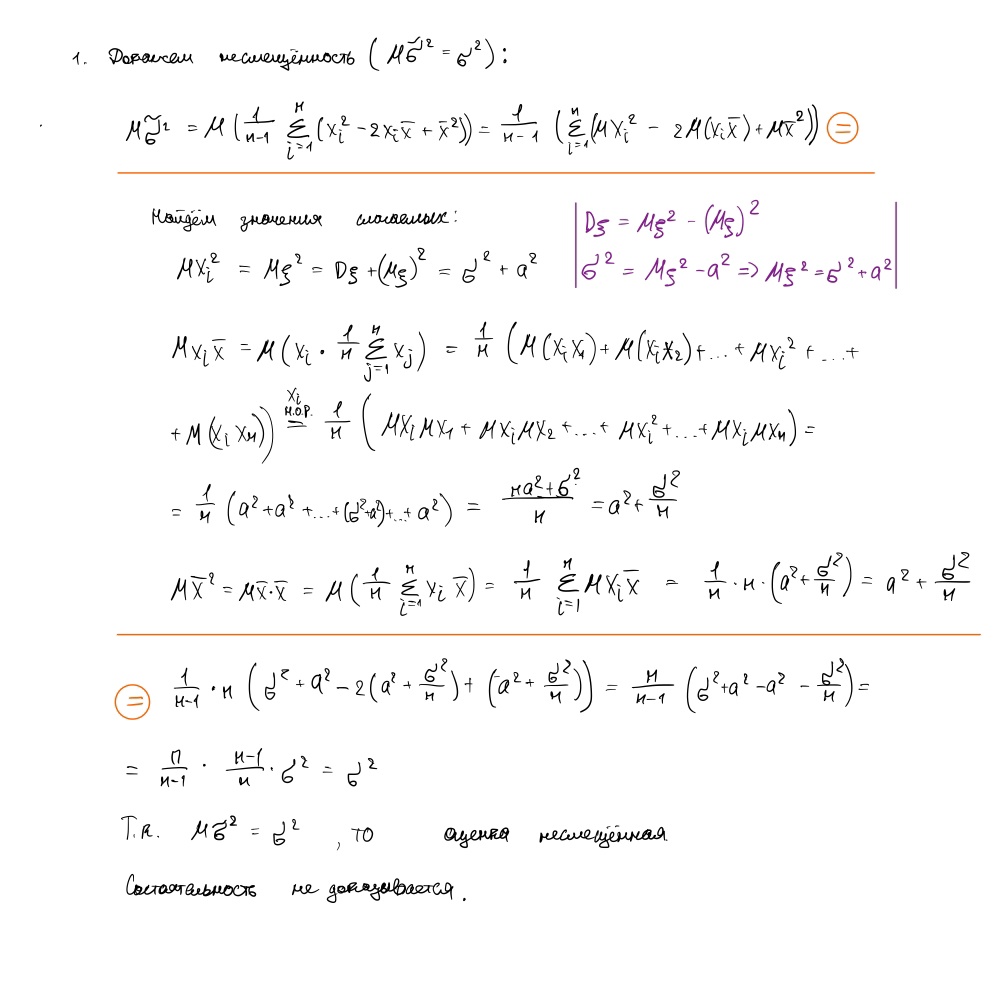 1. Докажем несмещённость (Mσ̃² = σ²):
Mσ̃² = M(1/(n-1) ∑_{i=1}^{n} (x_i² - 2x_i x̄ + x̄²)) = 1/(n-1) (∑_{i=1}^{n} (Mx_i² - 2M(x_i x̄) + Mx̄²)) =
Найдём значения слагаемых:
Dξ = Mξ² - (Mξ)²
Mx_i² = Mξ² = Dξ + (Mξ)² = σ² + a²
σ² = Mξ² - a² => Mξ² = σ² + a²
Mx_i x̄ = M(x_i · 1/n ∑_{j=1}^{n} x_j) = 1/n (M(x_i x_1) + M(x_i x_2) + ... + Mx_i² + ... +
+ M(x_i x_n)) = (x_i н.о.р.) 1/n (Mx_i Mx_1 + Mx_i Mx_2 + ... + Mx_i² + ... + Mx_i Mx_n) =
= 1/n (a² + a² + ... + (σ² + a²) + ... + a²) = (na² + σ²)/n = a² + σ²/n
Mx̄² = Mx̄·x̄ = M(1/n ∑_{i=1}^{n} x_i x̄) = 1/n ∑_{i=1}^{n} Mx_i x̄ = 1/n · n · (a² + σ²/n) = a² + σ²/n
= 1/(n-1) · n (σ² + a² - 2(a² + σ²/n) + (a² + σ²/n)) = n/(n-1) (σ² + a² - a² - σ²/n) =
= n/(n-1) · (n-1)/n · σ² = σ²
Т.к. Mσ̃² = σ², то оценка несмещённая
Состоятельность не доказывается.